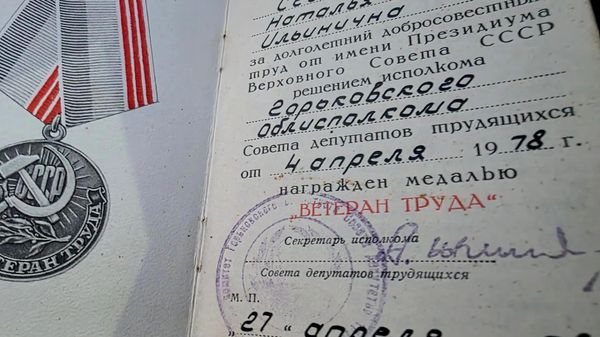 Наталья
Ильинична
за долголетний добросовестный
труд от имени Президиума
Верховного Совета СССР
решением исполкома
Горьковского
облисполкома
Совета депутатов трудящихся
от 4 апреля 1978 г.
награжден медалью
„ВЕТЕРАН ТРУДА“
Секретарь исполкома
Совета депутатов трудящихся
М. П.
„27“ апреля
СССР
ВЕТЕРАН ТРУДА